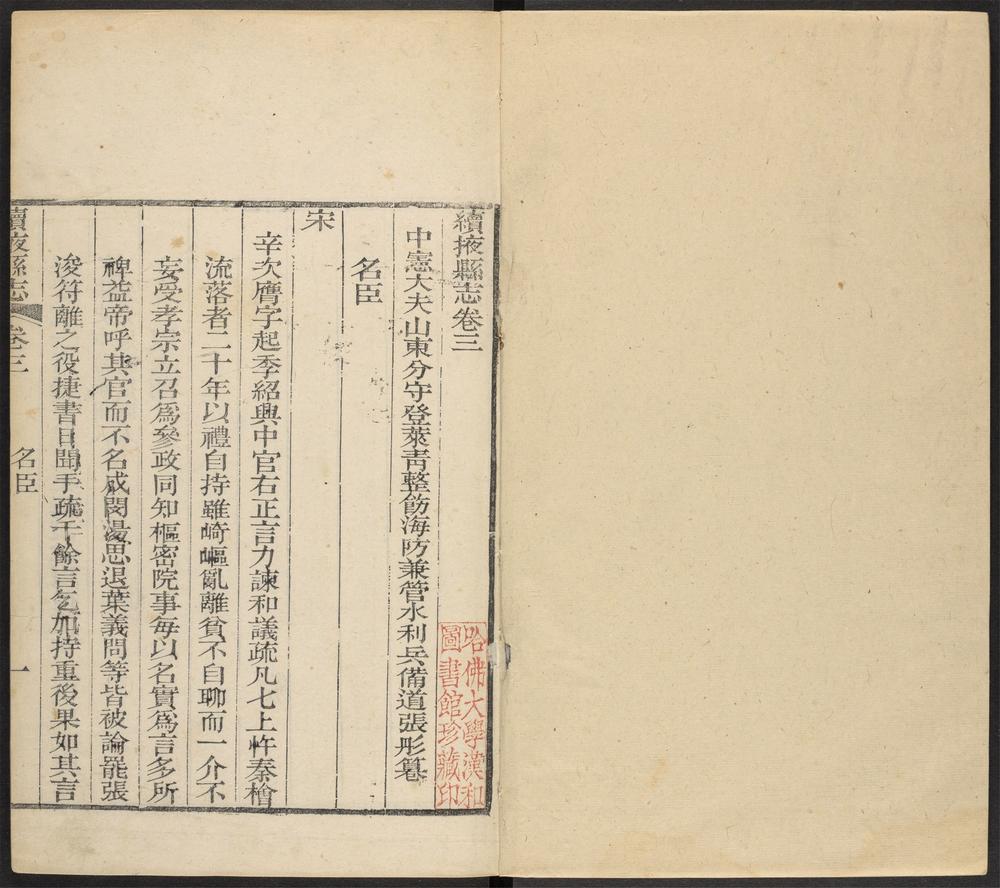 續掖縣志卷三
中憲大夫山東分守登萊靑整飭海防兼管水利兵備道張彤纂
名臣
宋
辛次膺字起季紹興中官右正言力諫和議疏凡七上忤秦檜
流落者二十年以禮自持雖崎嶇亂離貧不自聊而一介不
妄受孝宗立召爲參政同知樞密院事每以名實爲言多所
裨益帝呼其官而不名成閔湯思退葉義問等皆被論罷張
浚符離之役捷書日聞手疏千餘言乞加持重後果如其言
續掖縣志 卷三 名臣 一
哈佛大學漢和
圖書館珍藏印